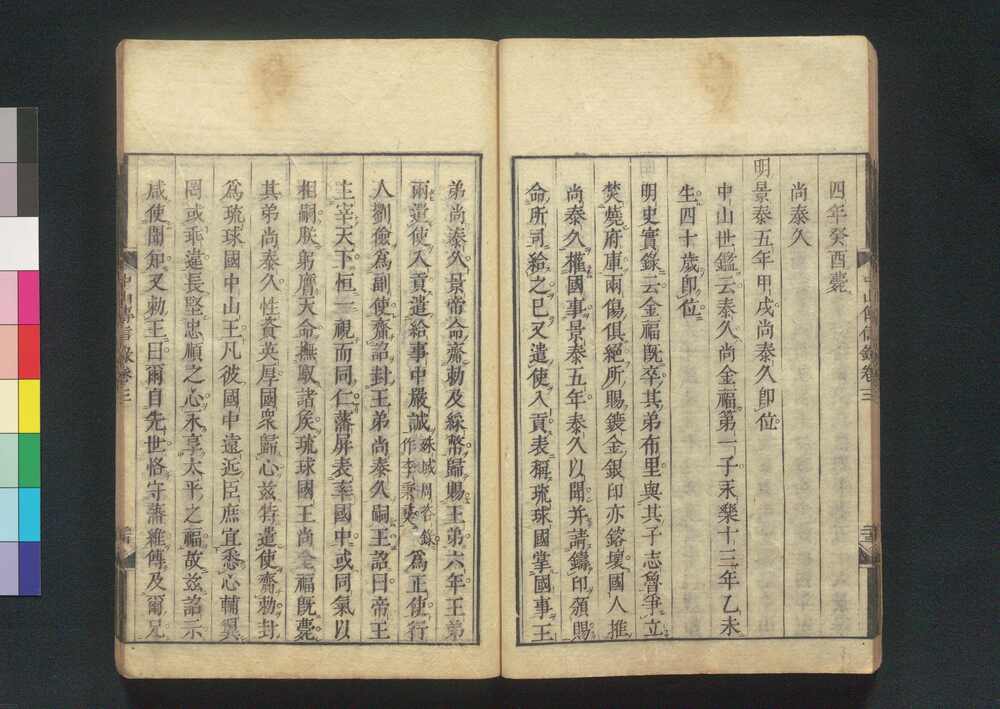 四年癸酉薨
尚泰久
明景泰五年甲戌尚泰久卽位
中山世鑑云泰久尚金福第一子永樂十三年乙未
生四十歲卽位
明史實錄云金福旣卒其弟布里與其子志魯爭立
焚燒府庫兩傷俱絕所賜鍍金銀印亦鎔壞國人推
尚泰久權國事景泰五年泰久以聞并請鑄印領賜
命所司給之已又遣使入貢表稱琉球國掌國事王
弟尚泰久景帝命齎勅及綵幣歸賜王弟六年王弟
兩遣使入貢遣給事中嚴誠殊域周咨錄作李秉彝爲正使行
人劉儉爲副使齎詔封王弟尚泰久嗣王詔曰帝王
主宰天下恒一視而同仁藩屏表率國中或同氣以
相嗣朕躬膺天命撫馭諸侯琉球國王尚金福旣薨
其弟尚泰久性資英厚國衆歸心茲特遣使齎勅封
爲琉球國中山王凡彼國中遠近臣庶宜悉心輔翼
罔或乖違長堅忠順之心永享太平之福故茲詔示
咸使聞知又勅王曰爾自先世恪守藩維傳及爾兄
中山傳信錄卷三
中山傳信錄卷三